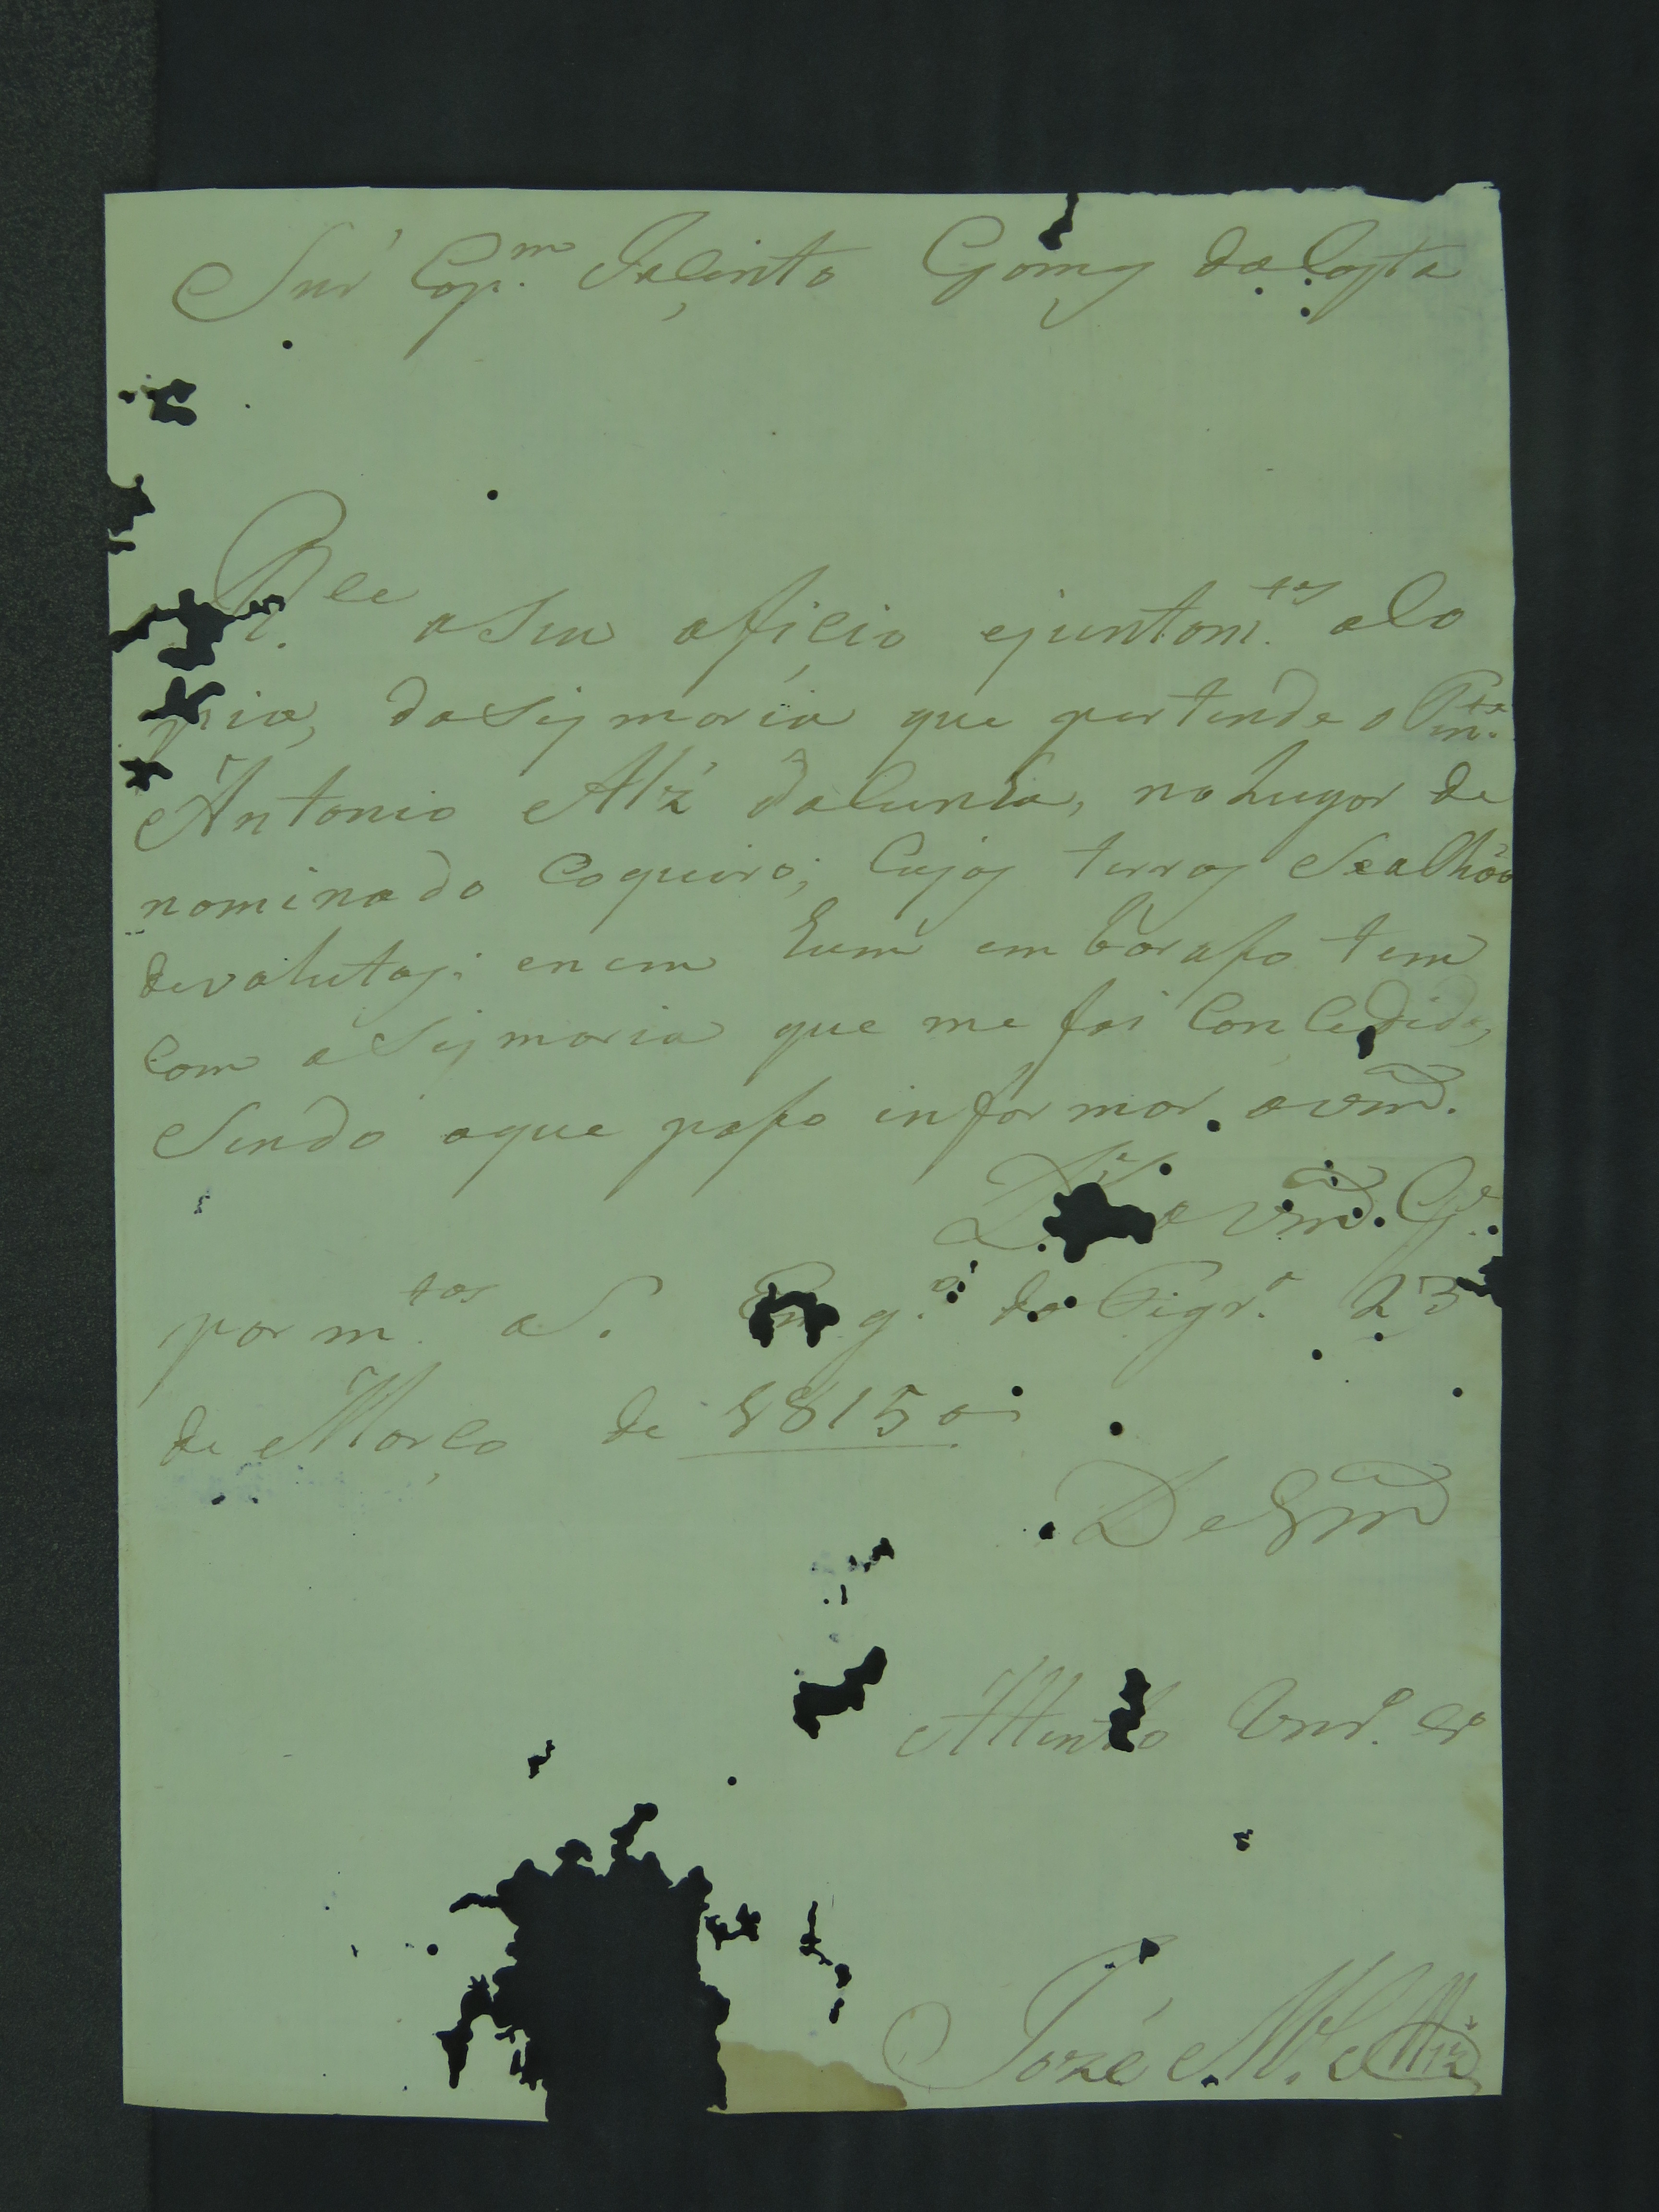 Snr' Cap.m Jaçinto Gomes da Costa
Rce
o Seu ofiçio ejuntam.tes a Co
pia, da Sismaria que pertende o Ten.te
Antonio Alz' da Cunha, no Lugar de
nominado Coqueiro; Cujas terras Se alhão
devalutas; enem hum embaraso tem
Com a Sismaria que me foi Conçedida,
Sendo aque poso informar. a vmd.
D.s a vmd. G.e
por m.tos a S. Eng.o do Pigr.o 23
de Março de 1815
De Vmd
Attento Vnr. Cr.o
Jozé M.el Miz